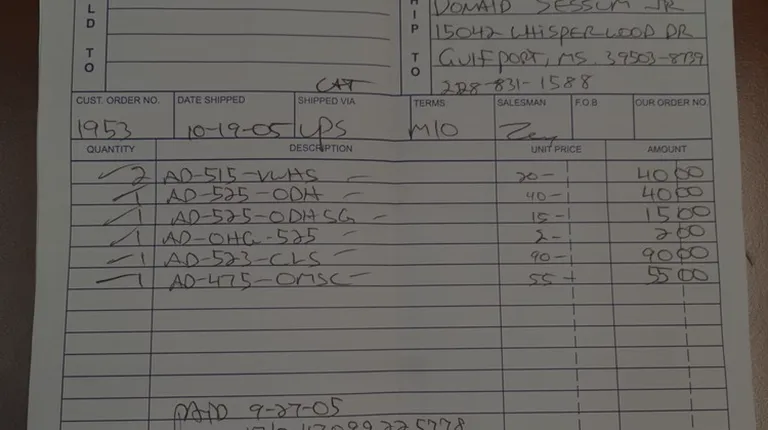 LD TO
SHIP TO
DONALD SESSUM JR
15042 WHISPERWOOD DR
GULFPORT, MS. 39503-8739
228-831-1588
CAT
CUST. ORDER NO. DATE SHIPPED SHIPPED VIA TERMS SALESMAN F.O.B OUR ORDER NO.
1953 10-19-05 UPS M/O
QUANTITY DESCRIPTION UNIT PRICE AMOUNT
2 AD-515-VWHS — 20- 40 00
1 AD-525-ODH — 40- 40 00
1 AD-525-ODHSG — 15- 15 00
1 AD-OHG-525 — 2- 2 00
1 AD-523-CLS — 90- 90 00
1 AD-475-OMSC — 55- 55 00
PAID 9-27-05